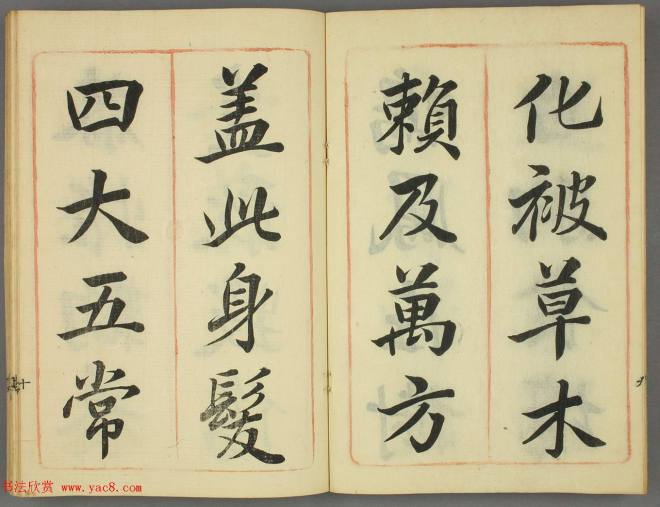 化被草木
賴及萬方
盖此身髮
四大五常
书法欣赏 www.yac8.com